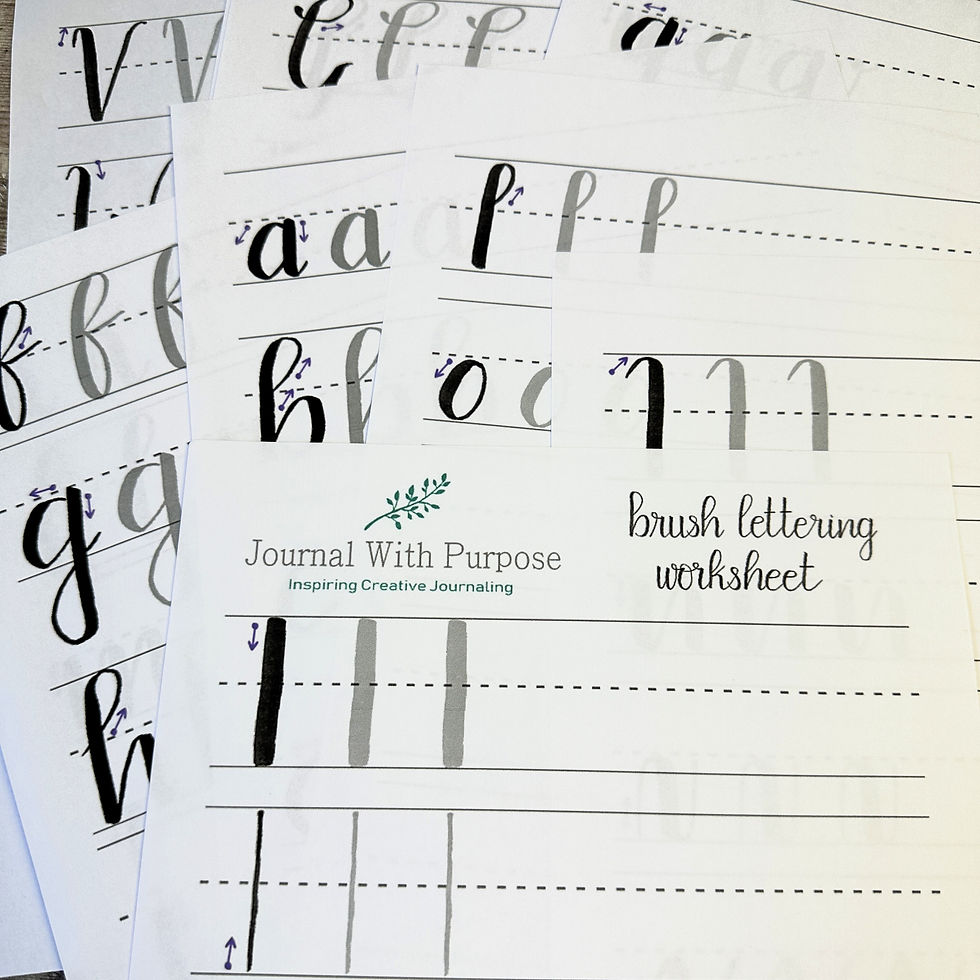 V V
l l l
a a a
a a
l l l
f f f
h
o
g g
Journal With Purpose
Inspiring Creative Journaling
brush lettering
worksheet
h